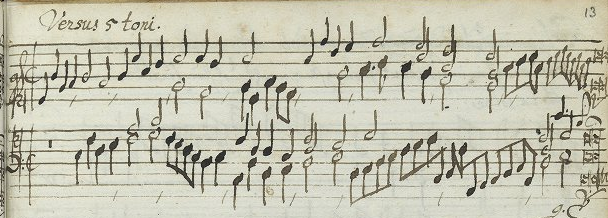 Versus 5 toni.
13